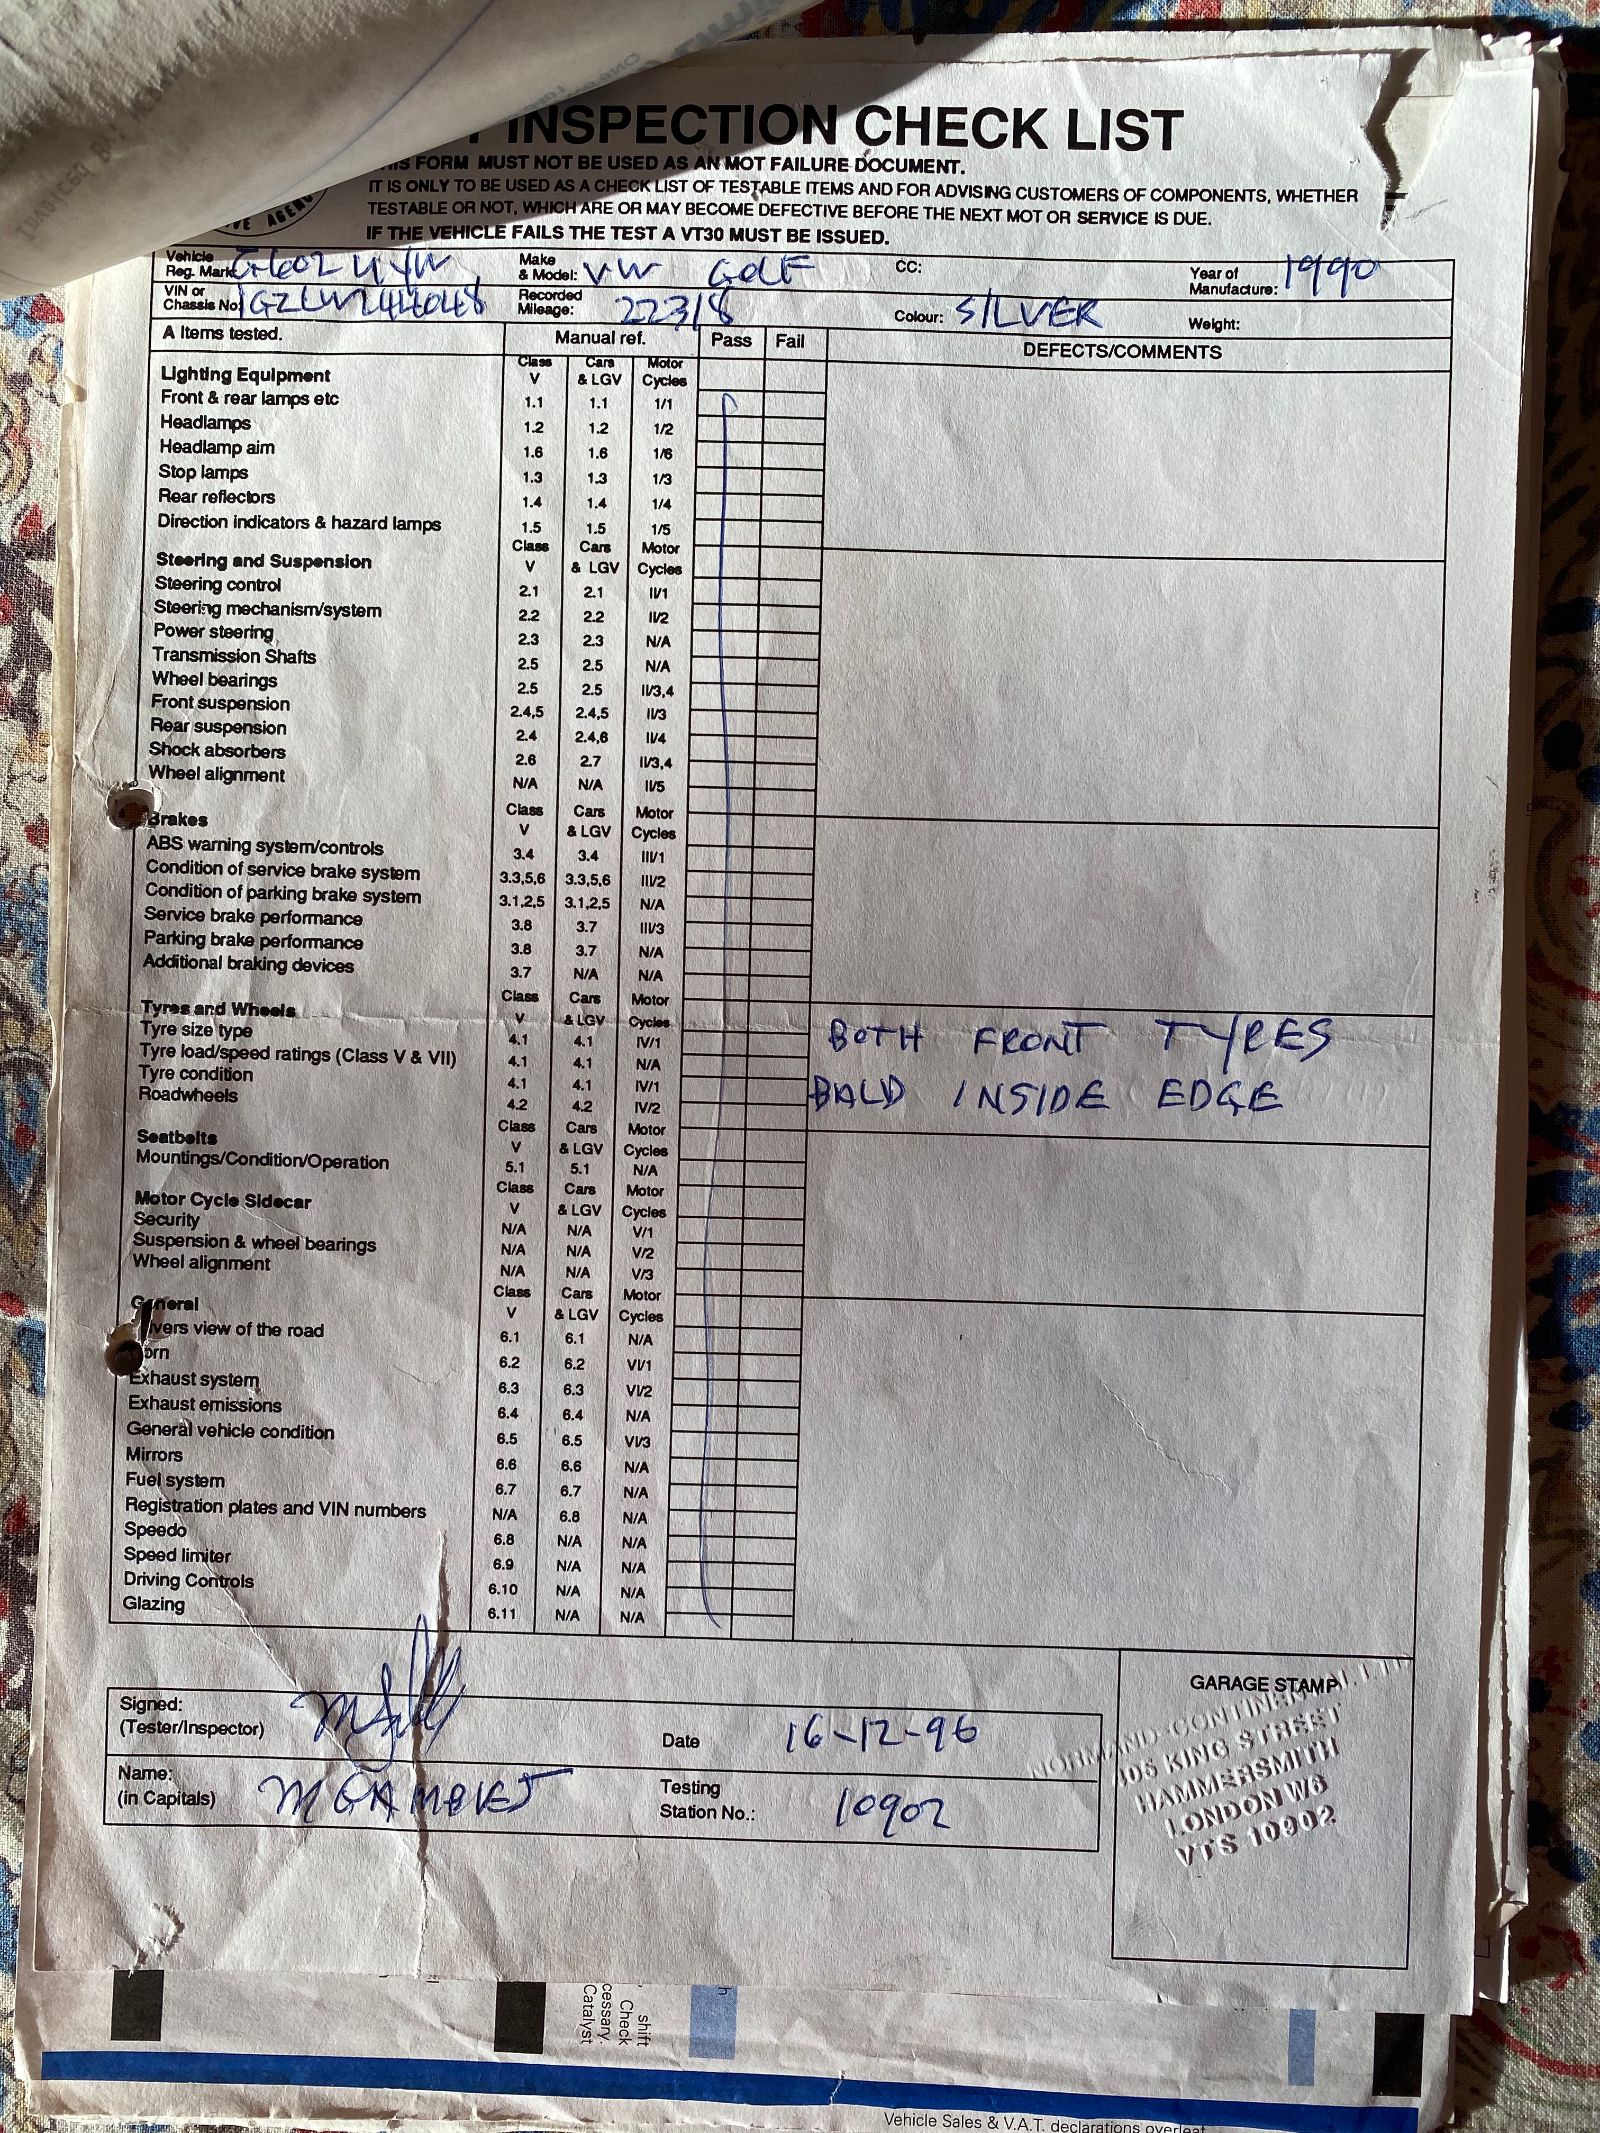 INSPECTION CHECK LIST
FORM MUST NOT BE USED AS AN MOT FAILURE DOCUMENT.
IT IS ONLY TO BE USED AS A CHECK LIST OF TESTABLE ITEMS AND FOR ADVISING CUSTOMERS OF COMPONENTS, WHETHER
TESTABLE OR NOT, WHICH ARE OR MAY BECOME DEFECTIVE BEFORE THE NEXT MOT OR SERVICE IS DUE.
IF THE VEHICLE FAILS THE TEST A VT30 MUST BE ISSUED.
Vehicle Reg. Mark Make & Model: VW GOLF CC: Year of Manufacture: 1990
VIN or Chassis No. Recorded Mileage: 22318 Colour: SILVER Weight:
A Items tested. Manual ref. Pass Fail DEFECTS/COMMENTS
Lighting Equipment Class V Cars & LGV Motor Cycles
Front & rear lamps etc 1.1 1.1 1/1
Headlamps 1.2 1.2 1/2
Headlamp aim 1.6 1.6 1/6
Stop lamps 1.3 1.3 1/3
Rear reflectors 1.4 1.4 1/4
Direction indicators & hazard lamps 1.5 1.5 1/5
Steering and Suspension Class V Cars & LGV Motor Cycles
Steering control 2.1 2.1 II/1
Steering mechanism/system 2.2 2.2 II/2
Power steering 2.3 2.3 N/A
Transmission Shafts 2.5 2.5 N/A
Wheel bearings 2.5 2.5 II/3,4
Front suspension 2.4,5 2.4,5 II/3
Rear suspension 2.4 2.4,6 II/4
Shock absorbers 2.6 2.7 II/3,4
Wheel alignment N/A N/A II/5
Brakes Class V Cars & LGV Motor Cycles
ABS warning system/controls 3.4 3.4 III/1
Condition of service brake system 3.3,5,6 3.3,5,6 III/2
Condition of parking brake system 3.1,2,5 3.1,2,5 N/A
Service brake performance 3.8 3.7 III/3
Parking brake performance 3.8 3.7 N/A
Additional braking devices 3.7 N/A N/A
Tyres and Wheels Class V Cars & LGV Motor Cycles
Tyre size type 4.1 4.1 IV/1 BOTH FRONT TYRES
Tyre load/speed ratings (Class V & VII) 4.1 4.1 N/A
Tyre condition 4.1 4.1 IV/1 BALD INSIDE EDGE
Roadwheels 4.2 4.2 IV/2
Seatbelts Class V Cars & LGV Motor Cycles
Mountings/Condition/Operation 5.1 5.1 N/A
Motor Cycle Sidecar Class V Cars & LGV Motor Cycles
Security N/A N/A V/1
Suspension & wheel bearings N/A N/A V/2
Wheel alignment N/A N/A V/3
General Class V Cars & LGV Motor Cycles
vers view of the road 6.1 6.1 N/A
orn 6.2 6.2 VI/1
Exhaust system 6.3 6.3 VI/2
Exhaust emissions 6.4 6.4 N/A
General vehicle condition 6.5 6.5 VI/3
Mirrors 6.6 6.6 N/A
Fuel system 6.7 6.7 N/A
Registration plates and VIN numbers N/A 6.8 N/A
Speedo 6.8 N/A N/A
Speed limiter 6.9 N/A N/A
Driving Controls 6.10 N/A N/A
Glazing 6.11 N/A N/A
Signed: (Tester/Inspector) Date 16-12-96
Name: (in Capitals) Testing Station No.: 10902
GARAGE STAMP
NORMAND CONTINENTAL LTD
405 KING STREET
HAMMERSMITH
LONDON W6
VTS 10902
shift
Check
cessary.
Catalyst
Vehicle Sales & V.A.T. declarations overleaf